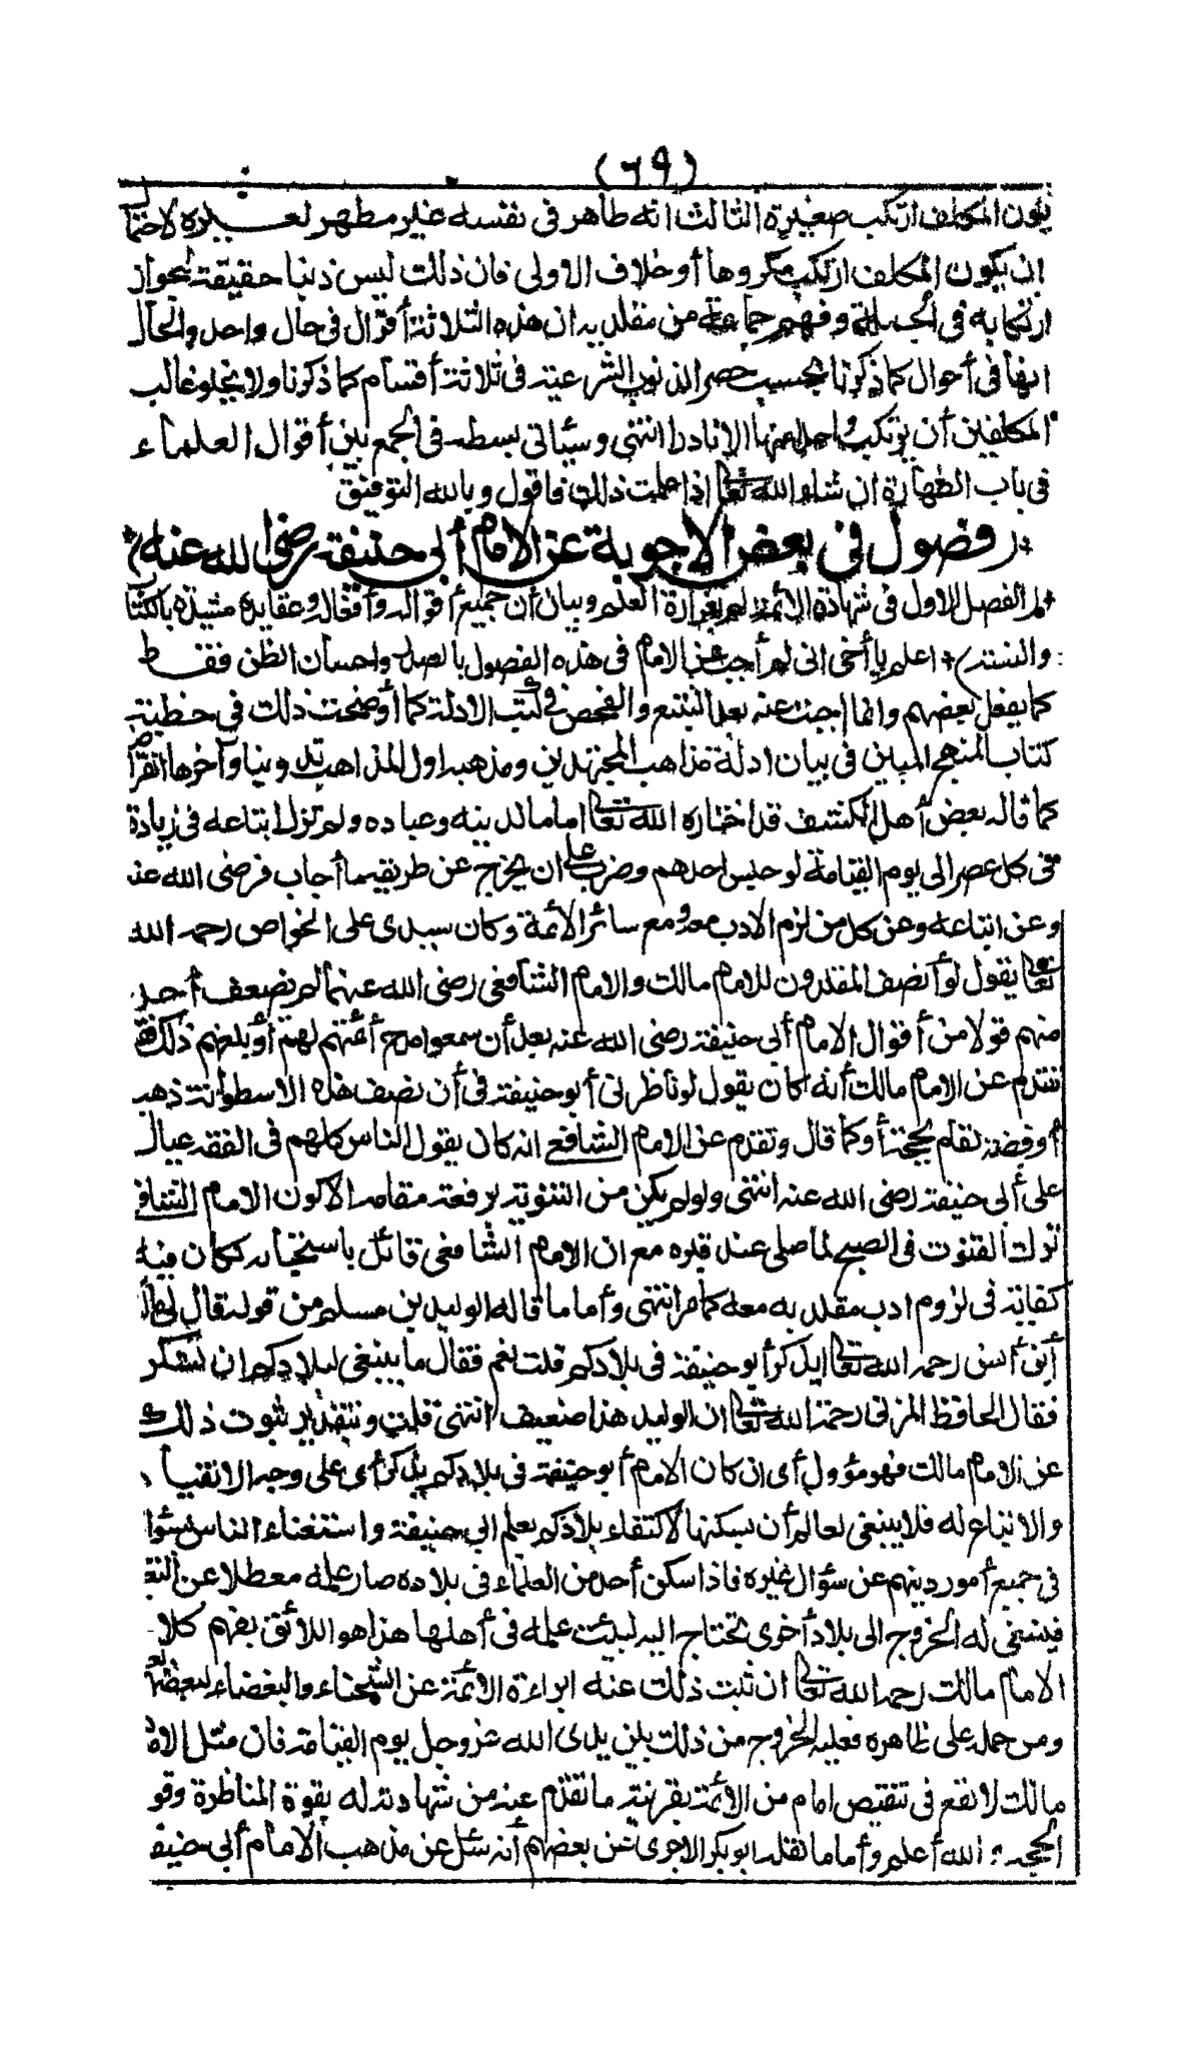 (٦٩)
يكون المكلف ارتكب صغيرة الثالث انه طاهر فى نفسه غير مطهر لغيره لاحتمال
ان يكون المكلف ارتكب مكروها أو خلاف الاولى فان ذلك ليس ذنبا حقيقة لجواز
ارتكابه فى الجملة وفهم جماعة من مقلديه ان هذه الثلاثة أقوال فى حال واحد والحال
انها فى أحوال كما ذكرنا بحسب حصر الذنوب الشرعية فى ثلاثة أقسام كما ذكرنا ولا يخلو غالب
المكلفين أن يرتكب واحدا منها الا نادرا انتهى وسيأتى بسطه فى الجمع بين أقوال العلماء
فى باب الطهارة ان شاء الله تعالى اذا علمت ذلك فاقول وبالله التوفيق
(فصول فى بعض الاجوبة عن الامام أبى حنيفة رضى الله عنه)
الفصل الاول فى شهادة الائمة له بغزارة العلم وبيان أن جميع أقواله وأفعاله وعقايده مشيدة بالكتاب
والسنة) اعلم يا أخى انى لم أجب عن الامام فى هذه الفصول بالصدر واحسان الظن فقط
كما يفعل بعضهم وانما اجبت عنه بعد التتبع والفحص فى كتب الادلة كما أوضحت ذلك فى خطبة
كتاب المنهج المبين فى بيان ادلة مذاهب المجتهدين ومذهبه اول المذاهب تدوينا وآخرها انقراضا
كما قاله بعض أهل الكشف قد اختاره الله تعالى اماما لدينه وعباده ولم تزل اتباعه فى زيادة
فى كل عصر الى يوم القيامة لو حبس احدهم وضرب على ان يخرج عن طريقه ما أجاب فرضى الله عنه
وعن اتباعه وعن كل من لزم الادب معه ومع سائر الأئمة وكان سيدى على الخواص رحمه الله
تعالى يقول لو أنصف المقلدون للامام مالك والامام الشافعى رضى الله عنهما لم يضعف أحد
منهم قولا من أقوال الامام أبى حنيفة رضى الله عنه بعد أن سمعوا مدح أئمتهم له أو بلغهم ذلك فقد
تقدم عن الامام مالك أنه كان يقول لو ناظرنى أبو حنيفة فى أن نصف هذه الاسطوانة ذهب
أو فضة لقام بحجته أو كما قال وتقدم عن الامام الشافعى انه كان يقول الناس كلهم فى الفقه عيال
على أبى حنيفة رضى الله عنه انتهى ولو لم يكن من التنويه برفعة مقامه الا كون الامام الشافعى
ترك القنوت فى الصبح لما صلى عند قبره مع ان الامام الشافعى قائل باستحبابه لكان فيه
كفاية فى لزوم ادب مقلديه معه كما مر انتهى وأما ما قاله الوليد بن مسلم من قوله قال لى مالك
ابن أنس رحمه الله تعالى ايذكر أبو حنيفة فى بلادكم قلت نعم فقال ما ينبغى لبلادكم ان تسكن
فقال الحافظ المزنى رحمة الله تعالى ان الوليد هذا ضعيف انتهى قلت وبتقدير ثبوت ذلك
عن الامام مالك فهو مؤول أى ان كان الامام أبو حنيفة فى بلادكم يذكر أى على وجه الانقياد
والاتباع له فلا ينبغى لعالم أن يسكنها لاكتفاء بلادكم بعلم ابى حنيفة واستغناء الناس بسؤاله
فى جميع أمور دينهم عن سؤال غيره فاذا سكن أحد من العلماء فى بلاده صار علمه معطلا عن التعليم
فينبغى له الخروج الى بلاد أخرى تحتاج اليه ليبث علمه فى أهلها هذا هو اللائق بفهم كلام
الامام مالك رحمه الله تعالى ان ثبت ذلك عنه ابراءة الائمة عن الشحناء والبغضاء لبعضهم
ومن حمله على ظاهره فعليه الخروج من ذلك بين يدى الله عز وجل يوم القيامة فان مثل الامام
مالك لا يقع فى تنقيص امام من الائمة بقرينة ما تقدم عنه من شهادته له بقوة المناظرة وقوة
الحجة والله أعلم وأما ما نقله ابو بكر الاجرى عن بعضهم أنه سئل عن مذهب الامام أبى حنيفة